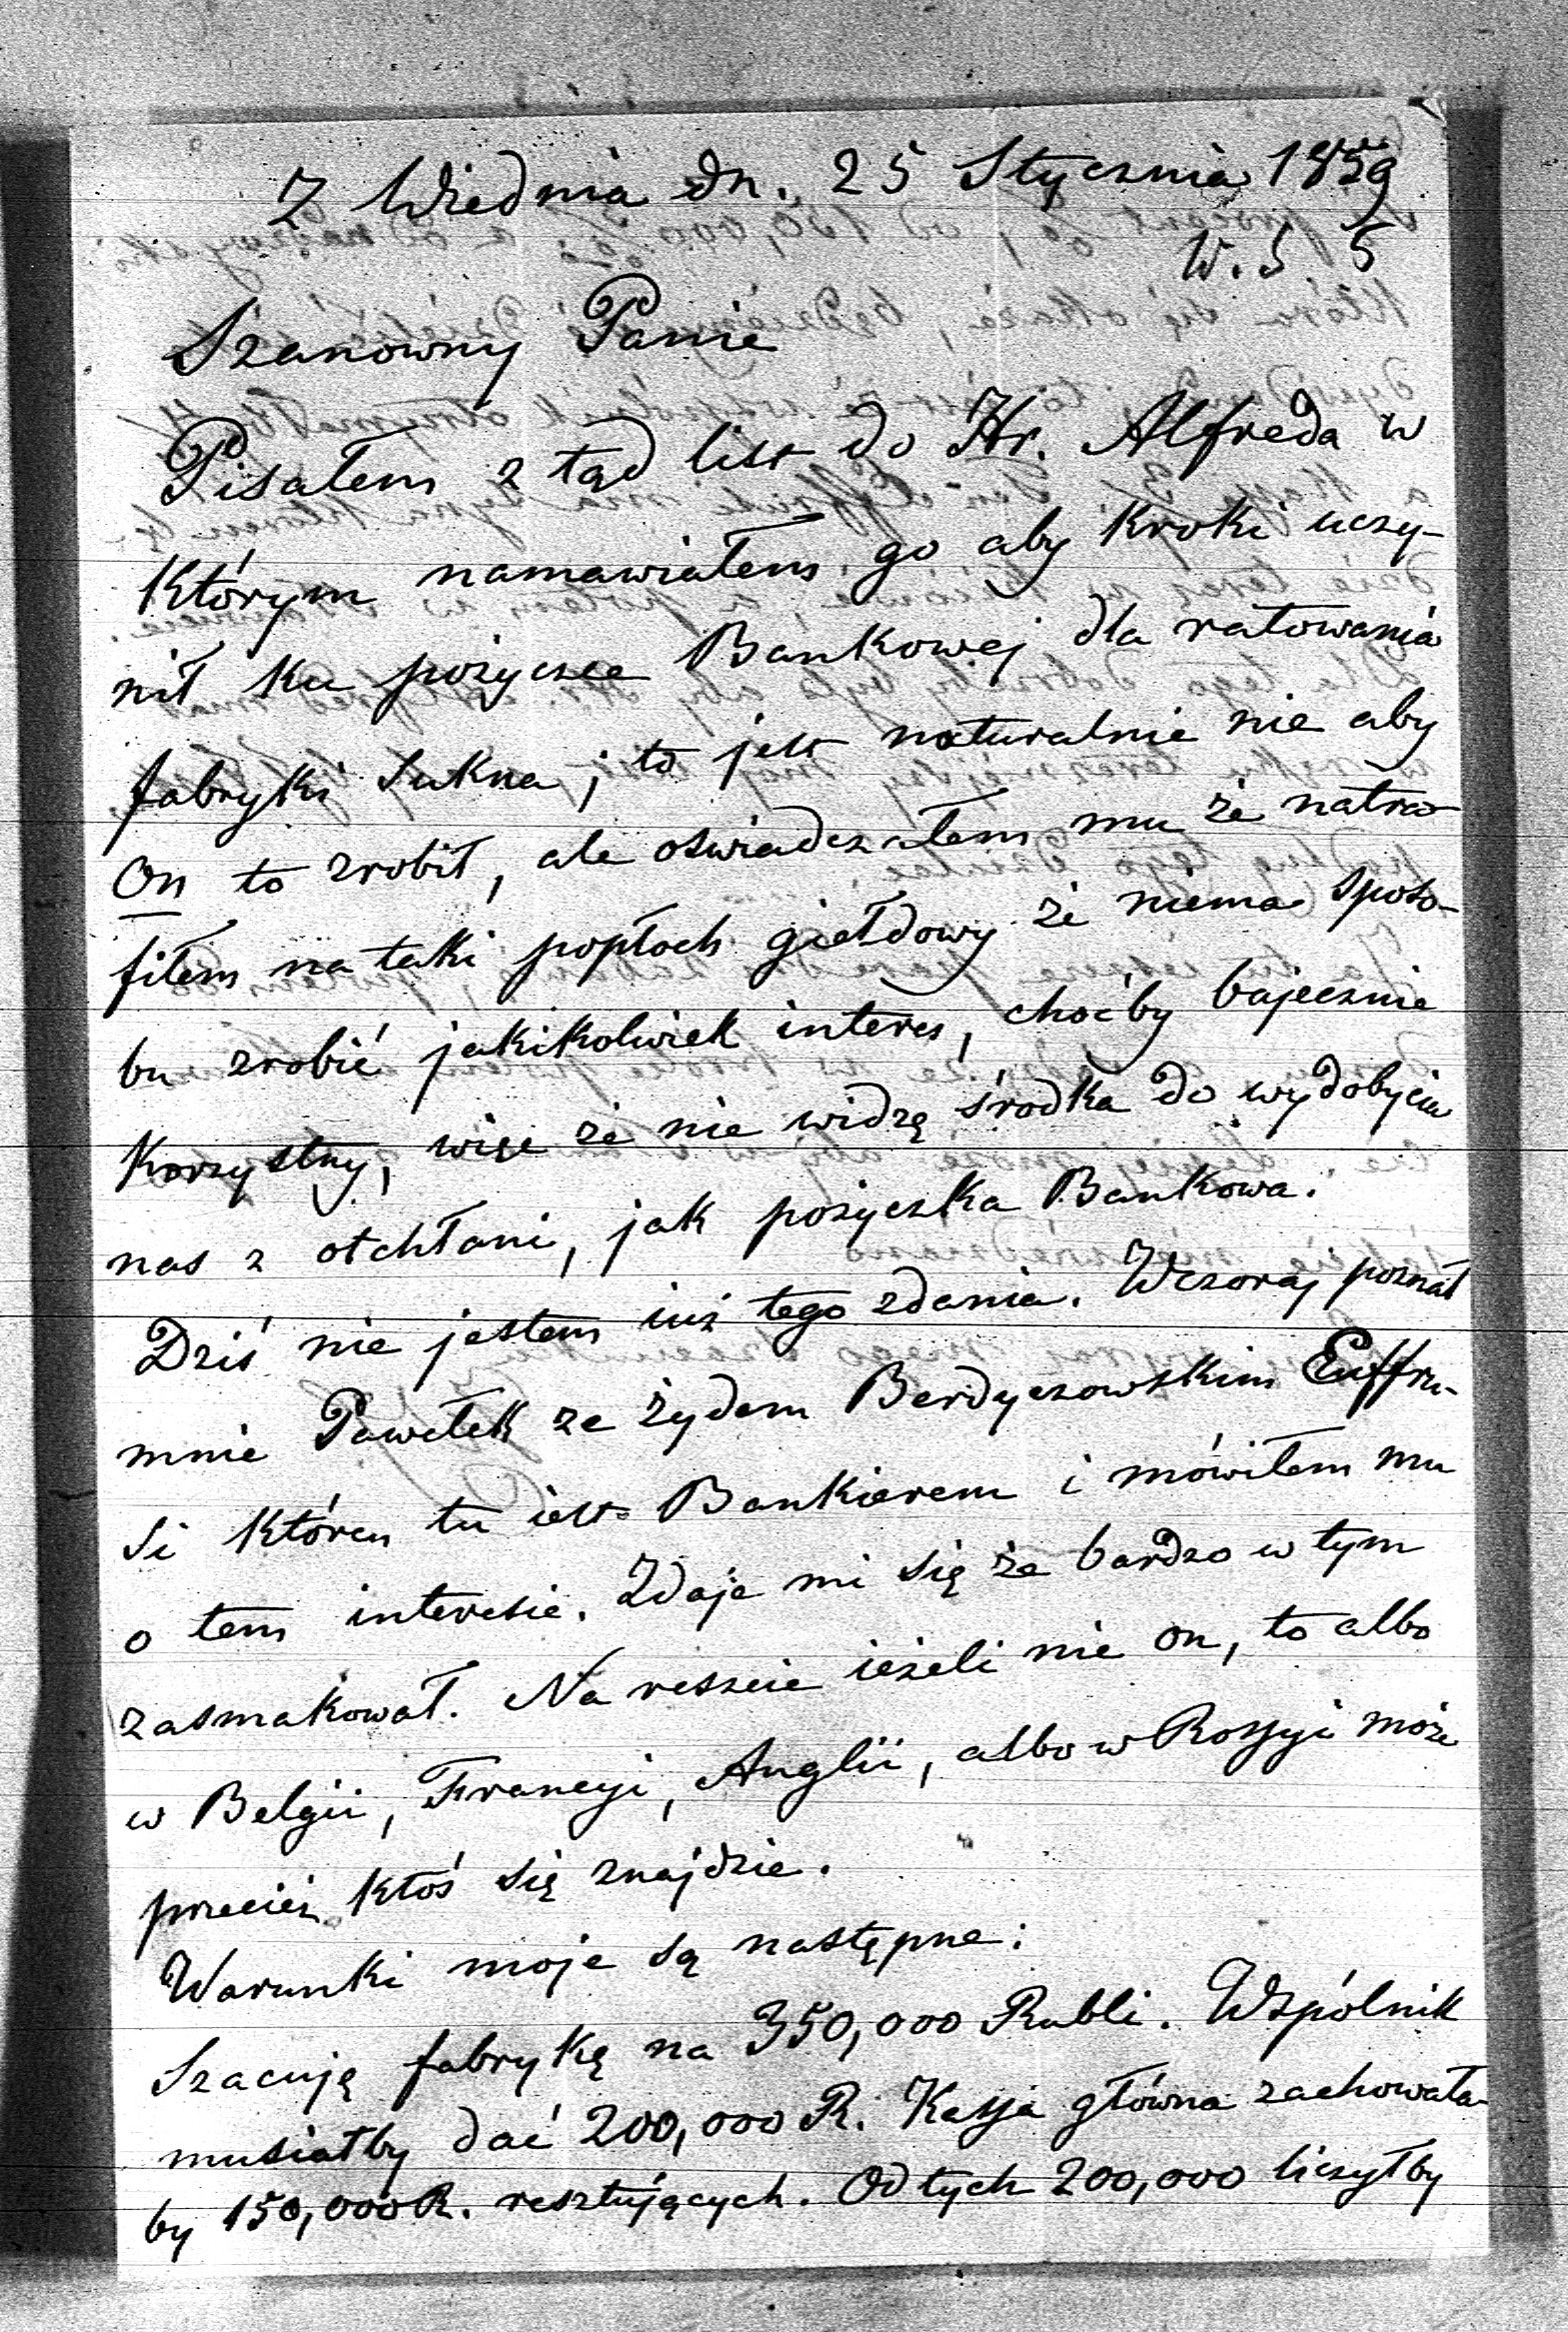 Z Wiednia dn. 25 Stycznia 1859
W. S. 5
Szanowny Panie
Pisałem z tąd list do Hr. Alfreda w
którym namawiałem go aby kroki uczy-
nił ku pożyczce Bankowej dla ratowania
fabryki sukna; to jest naturalnie nie aby
On to zrobił, ale oświadczałem mu że natra-
fiłem na taki popłoch giełdowy że niema sposo-
bu zrobić jakikolwiek interes, choćby bajecznie
korzystny, więc że nie widzę środka do wydobycia
nas z otchłani, jak pożyczka Bankowa.
Dziś nie jestem iuż tego zdania. Wczoraj poznał
mnie Pawełek ze żydem Berdyczowskim Euffru-
si któren tu iest Bankierem i mówiłem mu
o tem interesie. Zdaje mi się że bardzo w tym
zasmakował. Na reszcie ieżeli nie on, to albo
w Belgii, Francyi, Anglii, albo w Rossyi może
przecież ktoś się znajdzie.
Warunki moje są następne:
Szacuję fabrykę na 350,000 Rubli. Wspólnik
musiałby dać 200,000 R. Kassa główna zachowała-
by 150,000 R. resztujących. Od tych 200,000 liczyłby